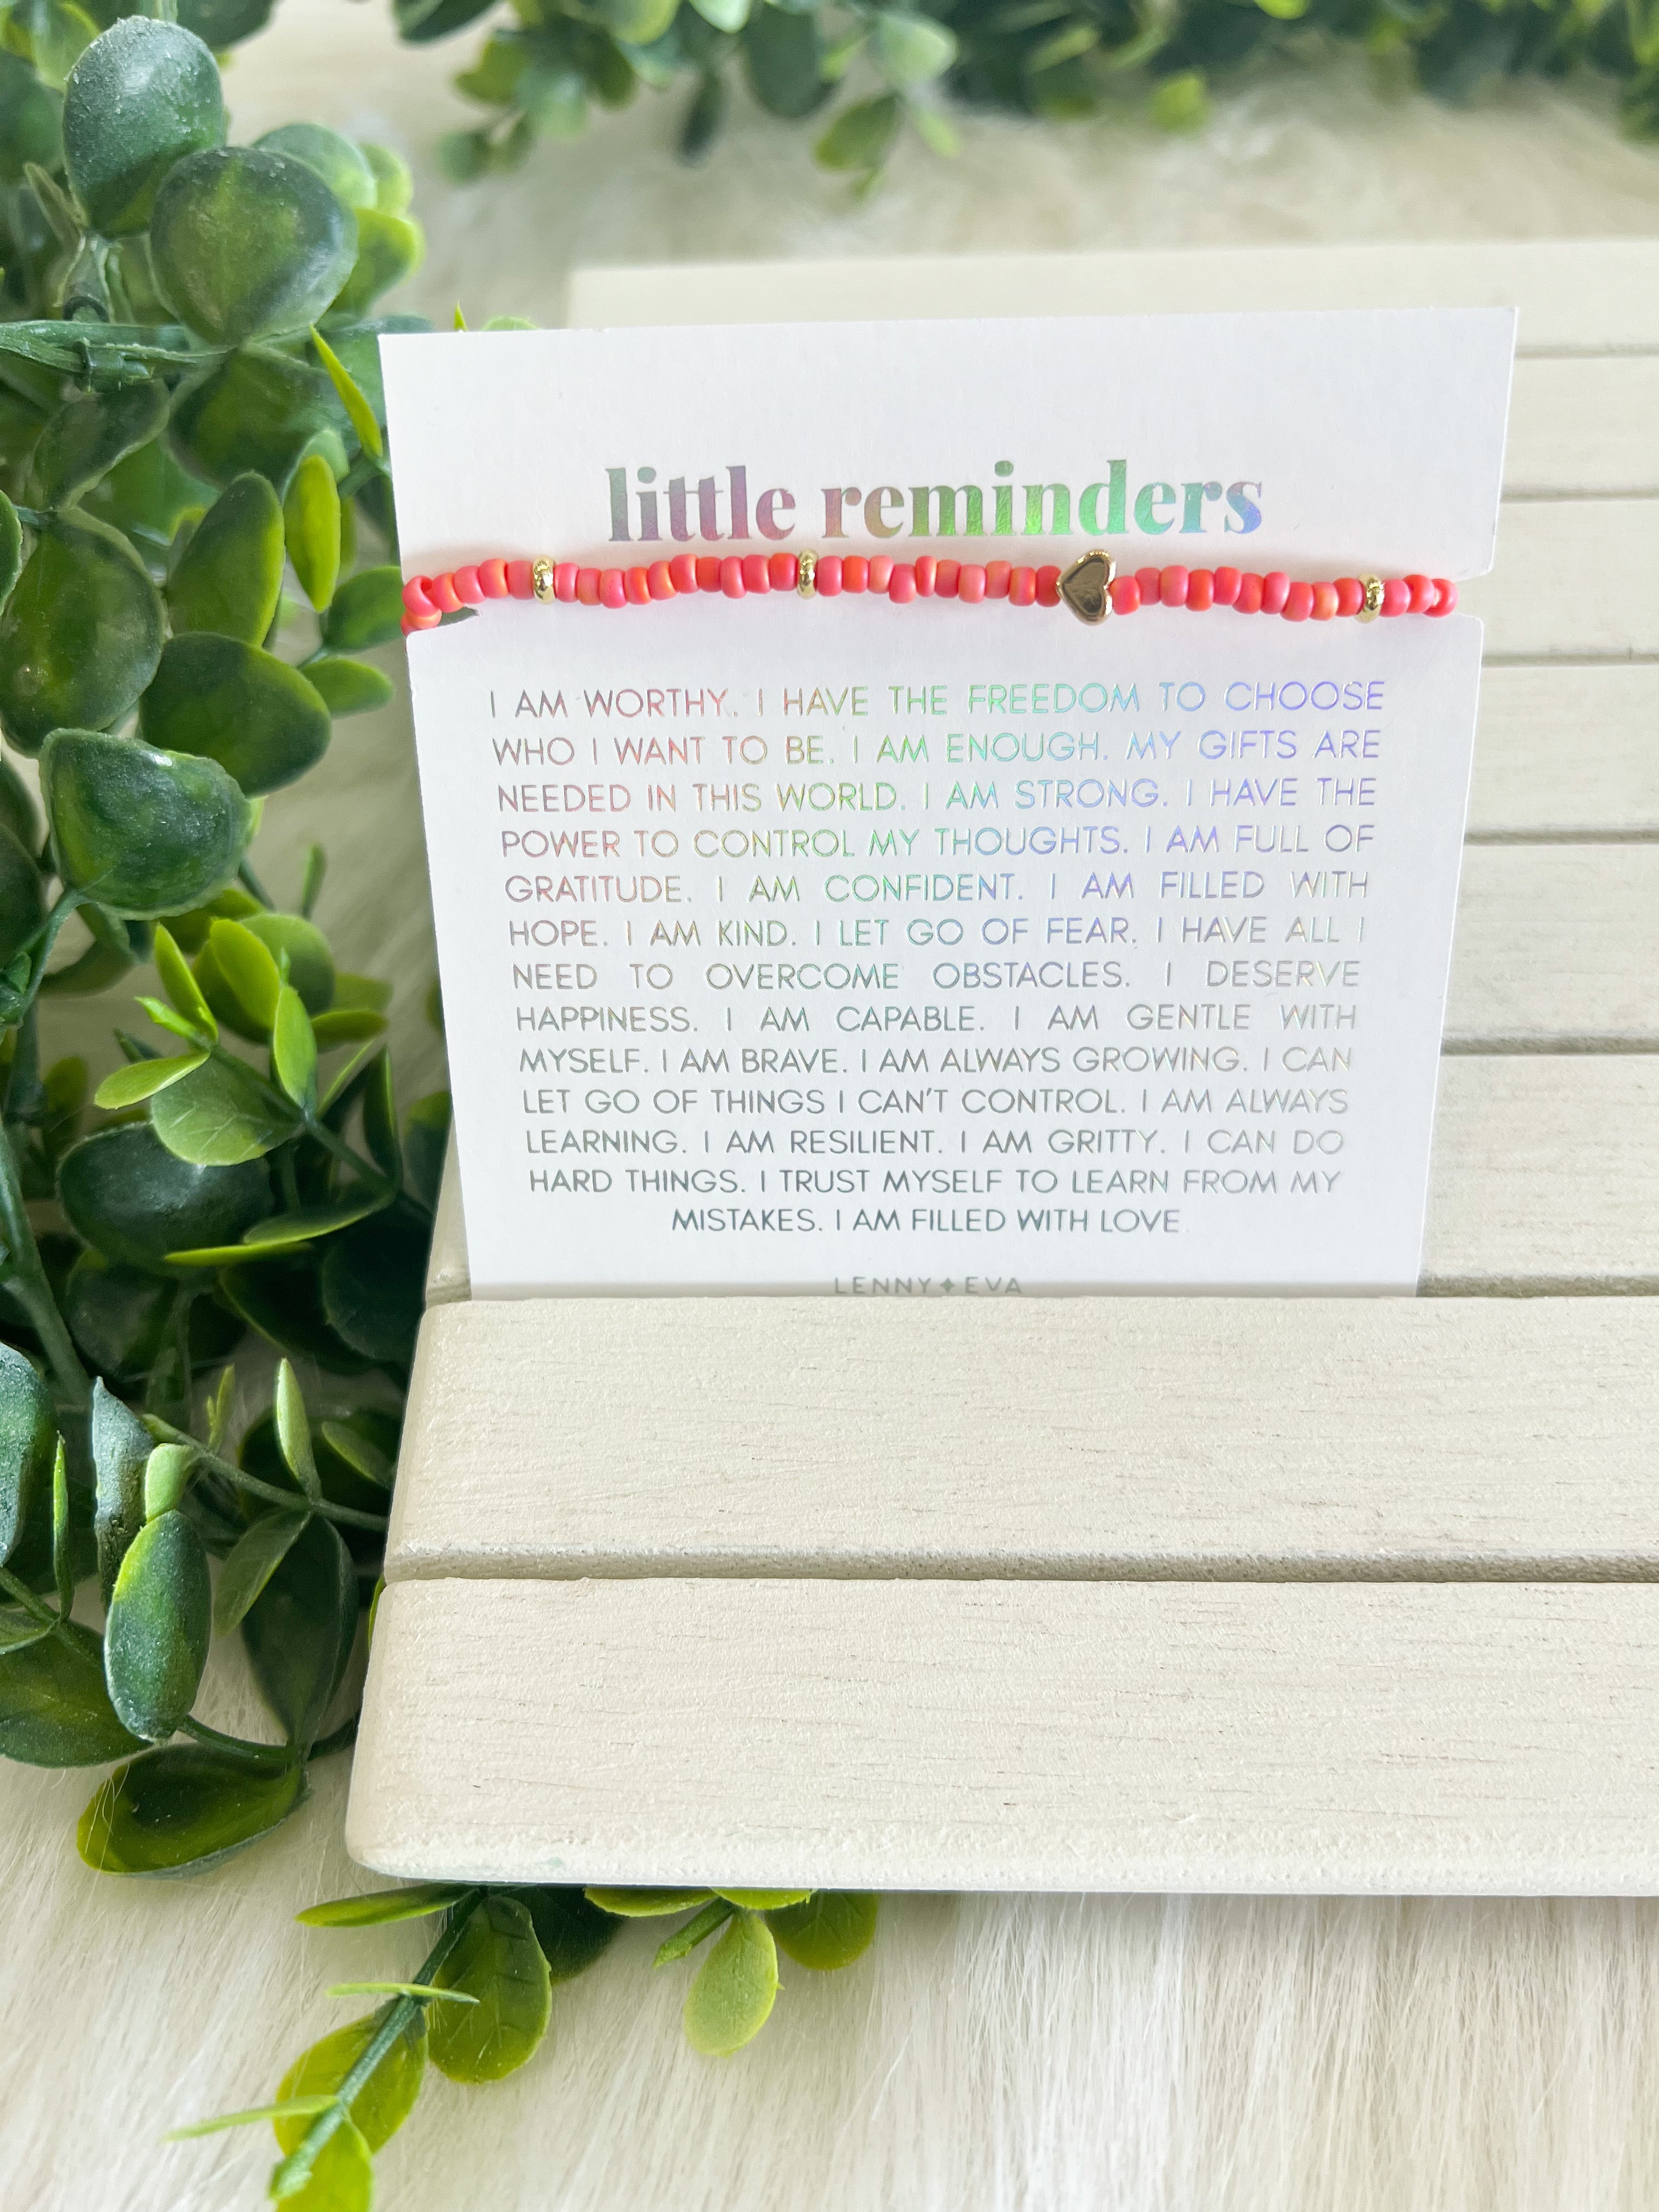 little reminders
I AM WORTHY. I HAVE THE FREEDOM TO CHOOSE
WHO I WANT TO BE. I AM ENOUGH. MY GIFTS ARE
NEEDED IN THIS WORLD. I AM STRONG. I HAVE THE
POWER TO CONTROL MY THOUGHTS. I AM FULL OF
GRATITUDE. I AM CONFIDENT. I AM FILLED WITH
HOPE. I AM KIND. I LET GO OF FEAR. I HAVE ALL I
NEED TO OVERCOME OBSTACLES. I DESERVE
HAPPINESS. I AM CAPABLE. I AM GENTLE WITH
MYSELF. I AM BRAVE. I AM ALWAYS GROWING. I CAN
LET GO OF THINGS I CAN'T CONTROL. I AM ALWAYS
LEARNING. I AM RESILIENT. I AM GRITTY. I CAN DO
HARD THINGS. I TRUST MYSELF TO LEARN FROM MY
MISTAKES. I AM FILLED WITH LOVE.
LENNY✦EVA